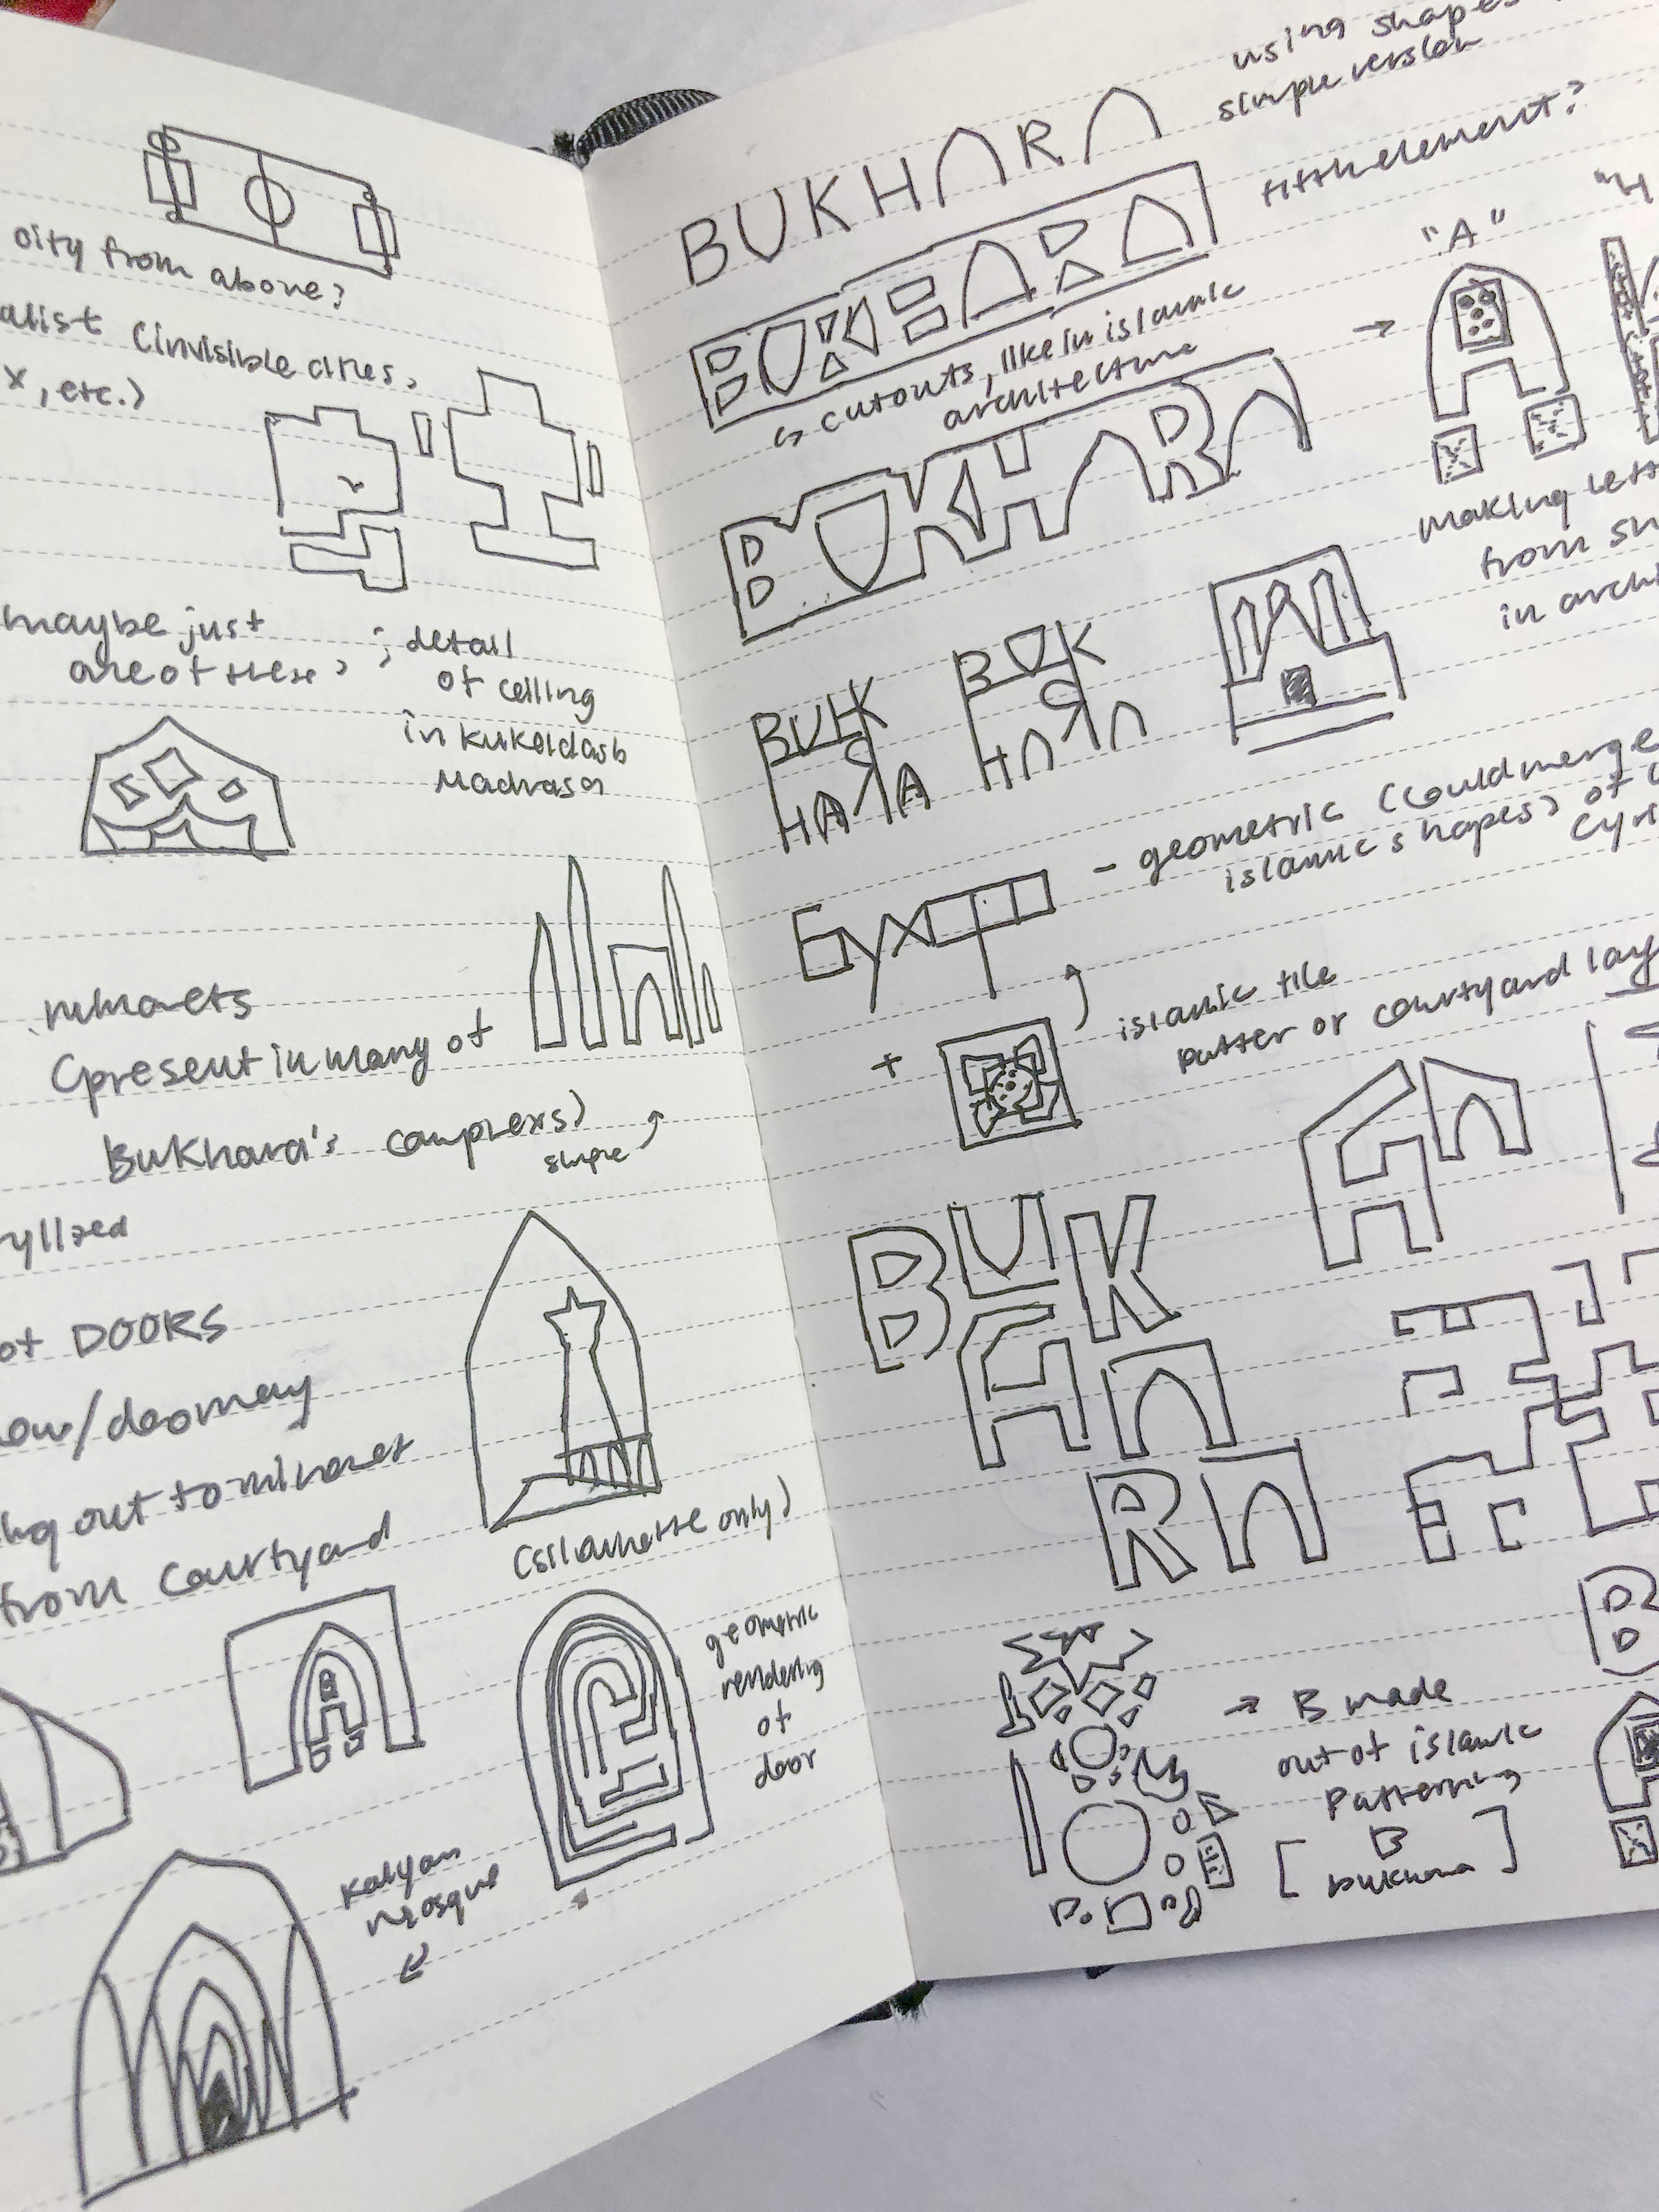 city from above?
alist (invisible cities,
x, etc.)
maybe just
one of these?
detail
of ceiling
in Kukeldash
Madrasa
minarets
(present in many of
Bukhara's complexs)
yllzed
of DOORS
ow/doorway
ing out to minaret
from courtyard
(silouhette only)
geometric
rendering
of
door
Kalyan
Mosque
using shapes
simple version
BUKHARA
fifth element?
BUKHARA
↳ cutouts, like in islamic
architecture
→
"A"
"H
BUKHARA
making lett
from sh
in archi
BUK
HARA
BUK
HARA
Бухар
- geometric (could merge
islamic shapes) of
Cyri
+
islamic tile
patter or courtyard lay
BUK
HA
RA
→ B made
out of islamic
patterning
[ B
bukhara ]
B